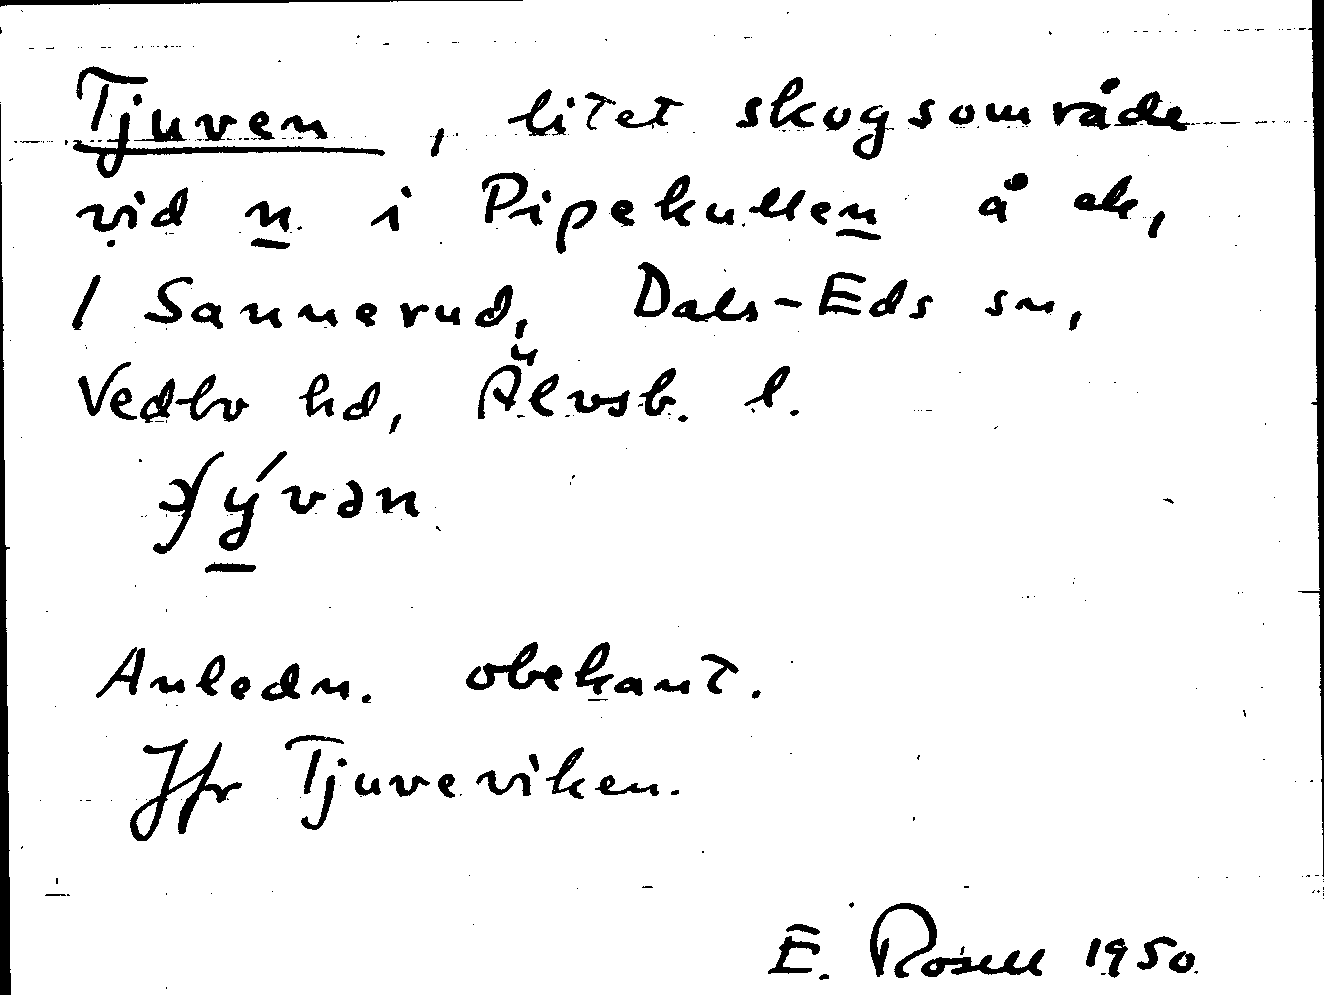 Tjuven, litet skogsområde
vid n i Pipekullen å ek,
/ Sannerud, Dals-Eds sn,
Vedbo hd, Älvsb. l.
Anledn. obekant.
Jfr Tjuveviken.
E. Rosell 1950